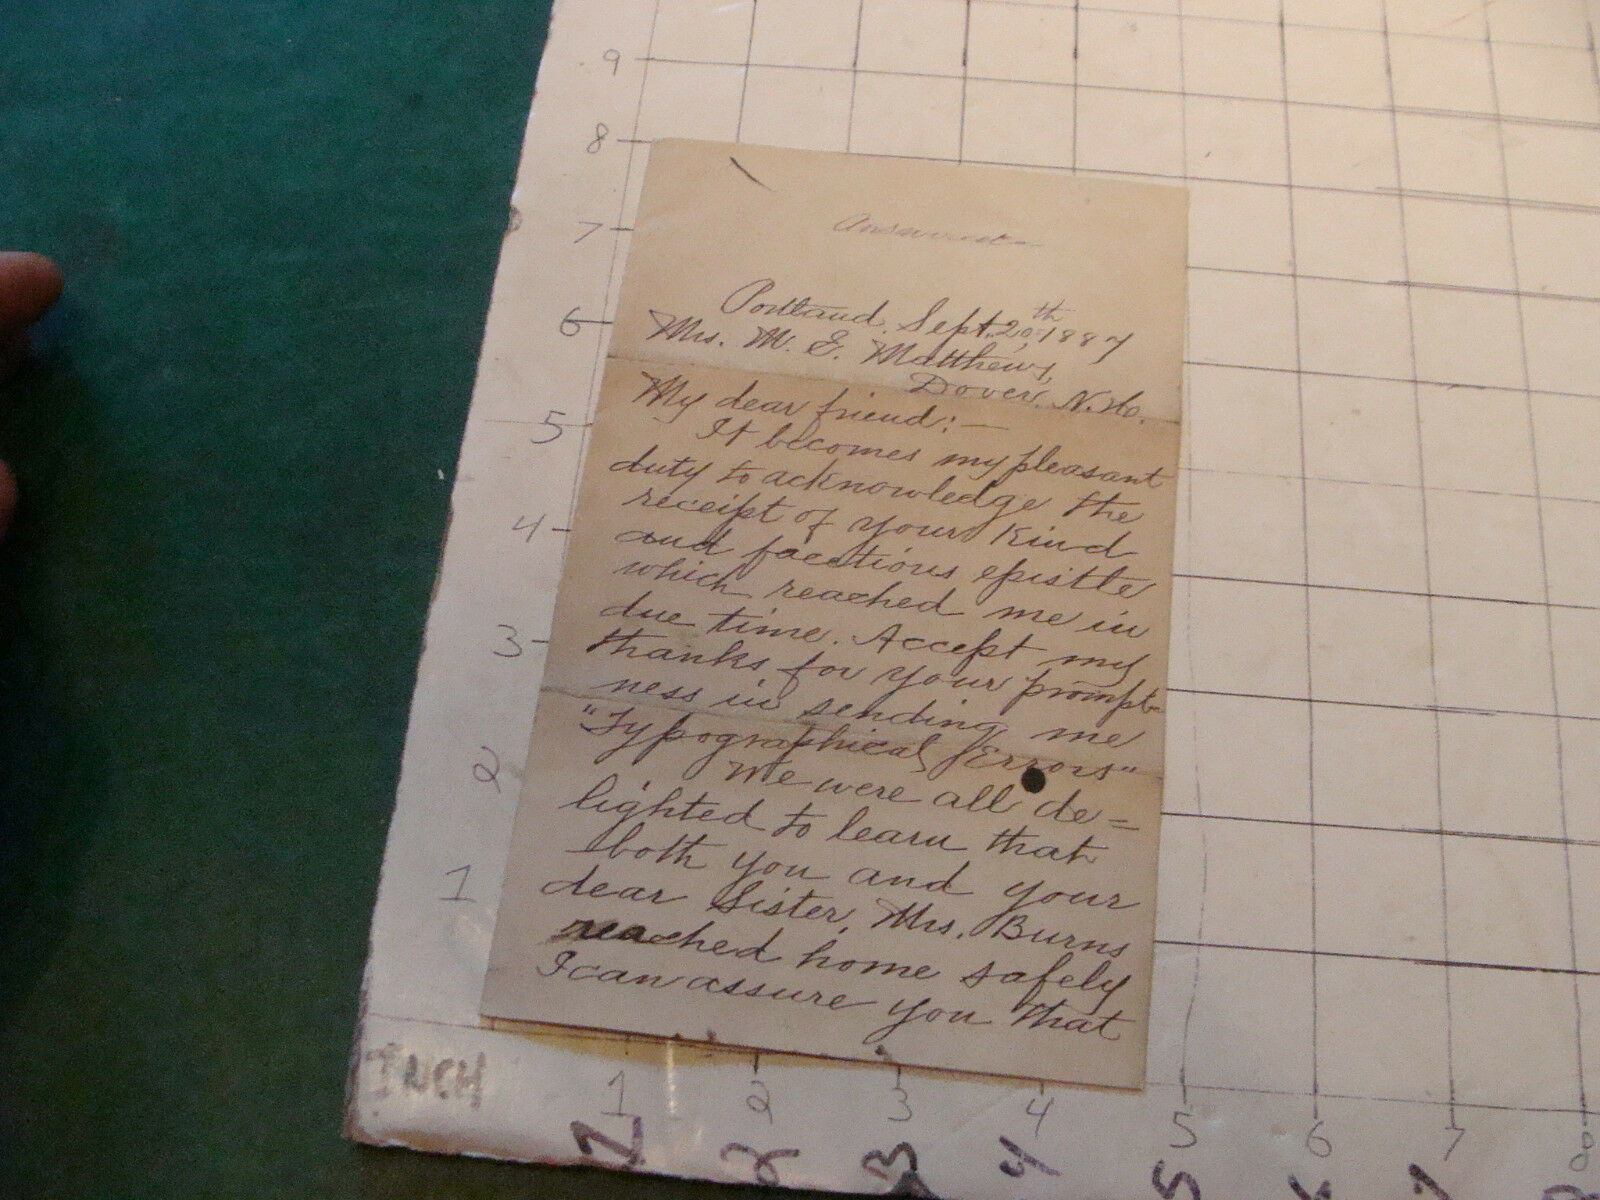 9
8
7
6
5
4
3
2
1
Answered
Portland, Sept. 20th, 1887
Mrs. M. E. Matthews,
Dover, N.H.
My dear friend:—
It becomes my pleasant
duty to acknowledge the
receipt of your kind
and facetious epistle
which reached me in
due time. Accept my
thanks for your prompt-
ness in sending me
"Typographical Errors"
We were all de=
lighted to learn that
both you and your
dear Sister, Mrs. Burns
reached home safely
I can assure you that
INCH
1 2 3 4 5 6 7 8
1 2 3 4 5 6 7